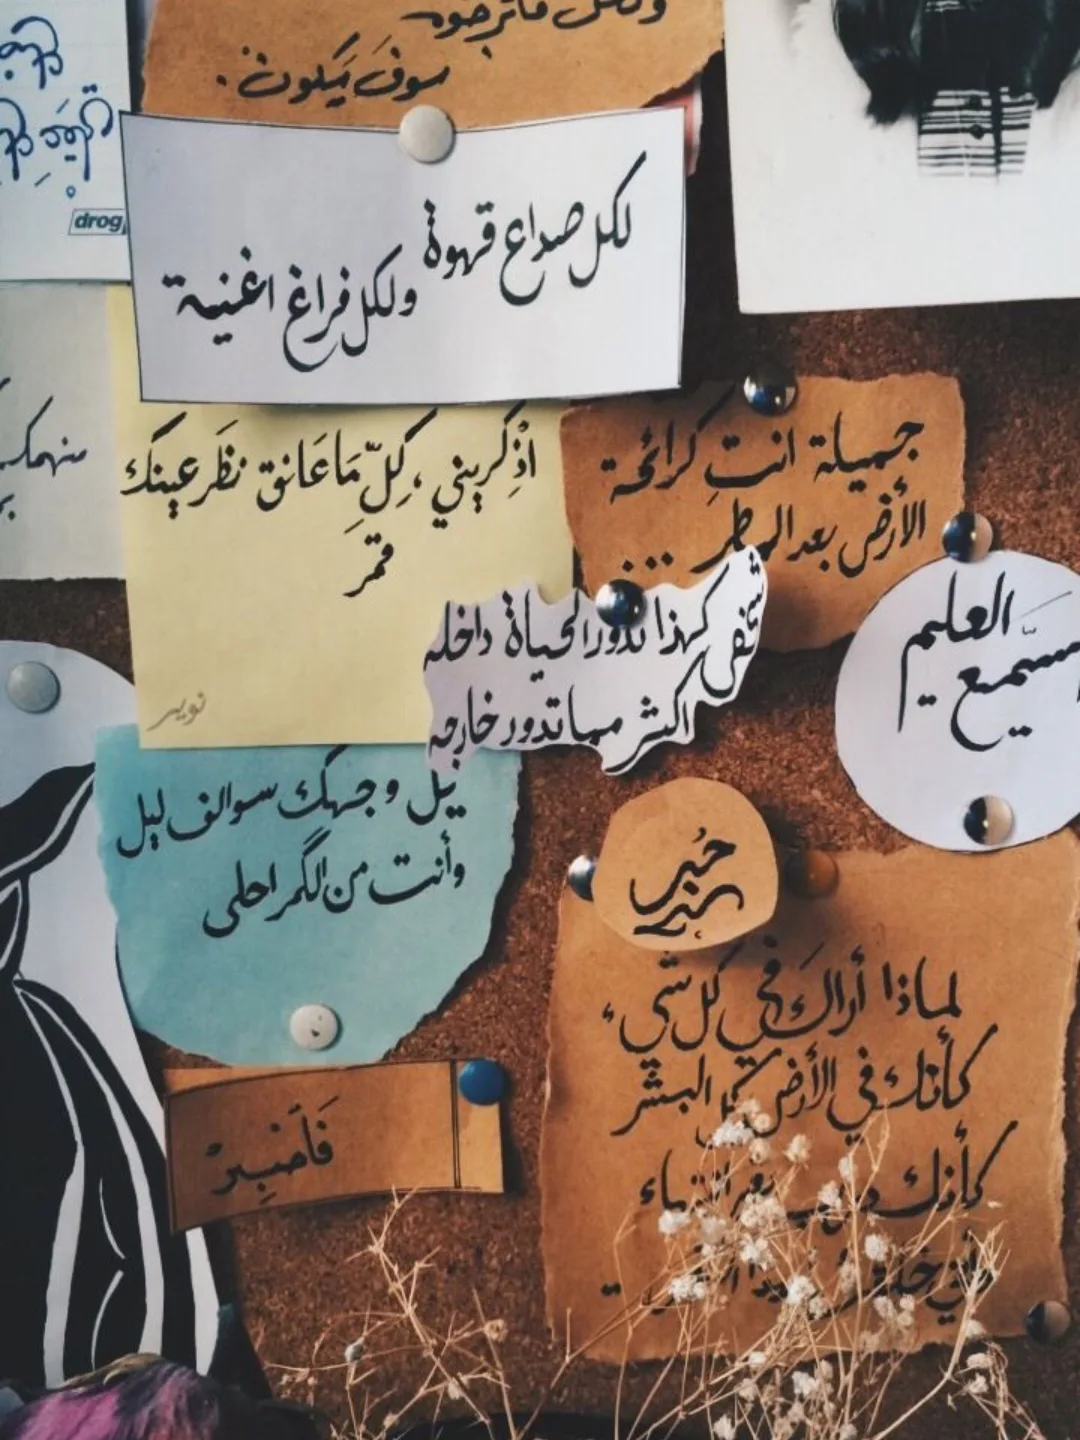 ولكل ماترجوه
سوفَ يَكون.
drog
لكل صداع قهوة
ولكل فراغ اغنية
اذْكريني ، كِلّ مَا عَانق نظَر عينك
قمَر
نوير
جميلة انتِ كرائحة
الأرض بعد المطر
...
شخص كهذا تدور الحياة داخله
اكثر مما تدور خارجه
العليم
السَّميع
ليل وجهك سوالف ليل
وأنت من الگمر احلى
حُبر
فَاصْبِرْ
لماذا أراكَ في كل شيء
كأنك في الأرض كل البشر
كأنك
منهمك